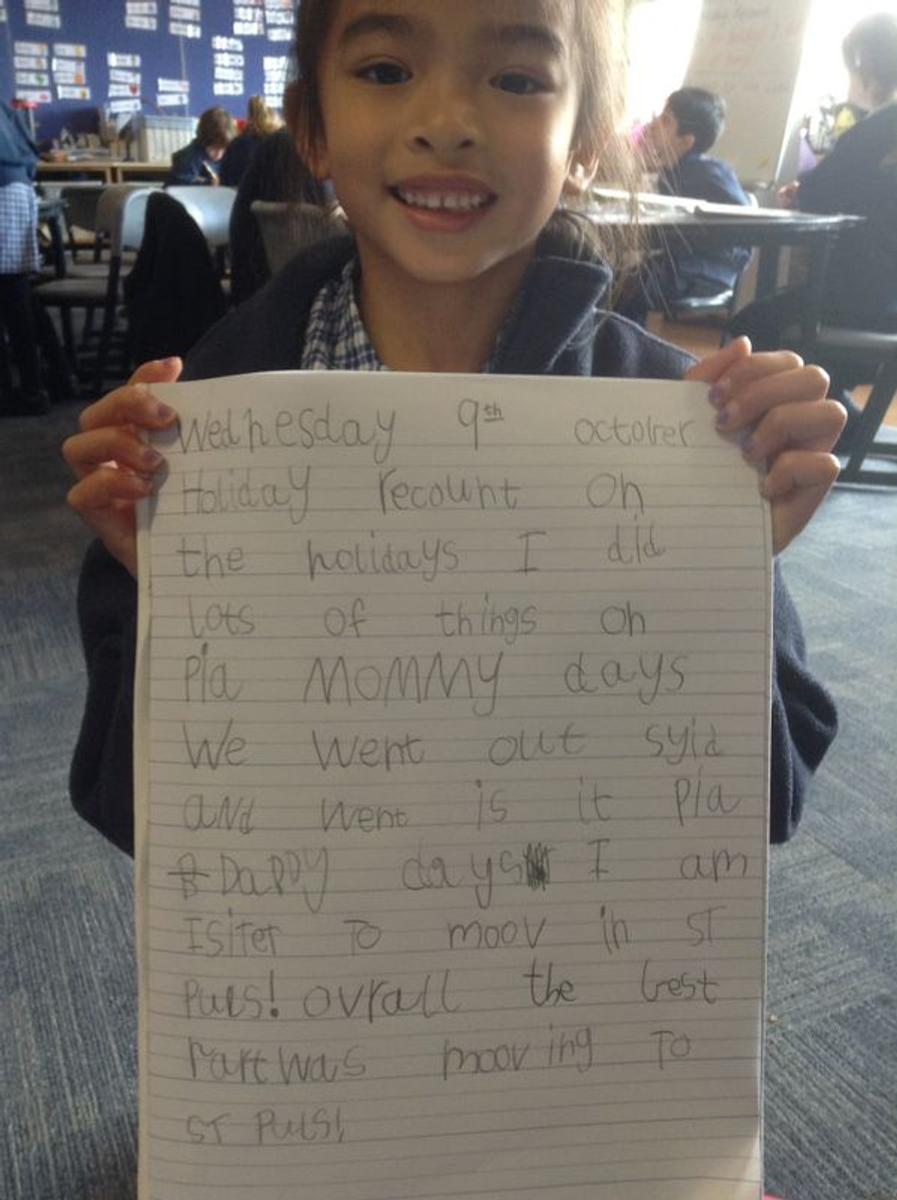 Wednesday 9th october
Holiday recount On
the holidays I did
lots of things on
Pla MOMMY days
We went out syid
and went is it pla
Daddy days I am
Isiter To moov in ST
Puls! ovrall the best
Part was mooving To
ST Puls!